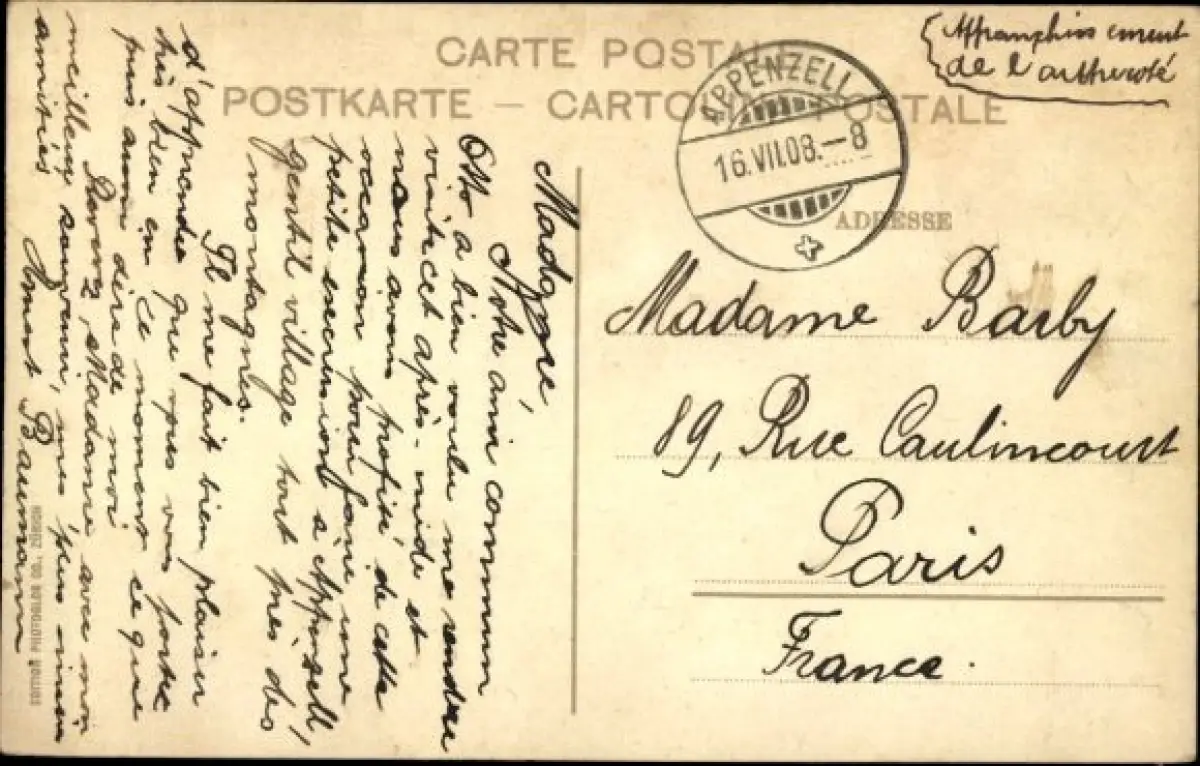 CARTE POSTALE
POSTKARTE — CARTOLINA POSTALE
Affranchissement
de l'autre coté
APPENZELL
16.VII.08.–8
ADRESSE
Madame Barby
89, Rue Caulincourt
Paris
France.
Madame,
Notre ami commun
Otto a bien voulu me rendre
visite cet après-midi et
nous avons profité de cette
occasion pour faire une
petite excursion à Appenzell,
gentil village tout près des
montagnes.
Il me fait bien plaisir
d'apprendre que vous vous portez
très bien en ce moment ce que
puis aussi dire de moi.
Recevez, Madame avec mon
meilleur souvenir, mes plus
amitiés
Baumann
EDITION PHOTOGLOB CO., ZÜRICH